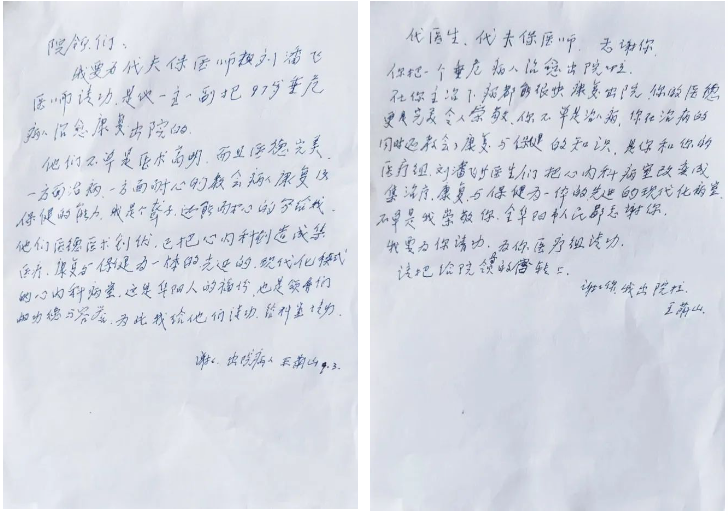 院领们：
我要为代夫保医师和刘潘飞
医师请功，是他一主一副把87岁重危
病人治愈康复出院的。
他们不单是医术高明，而且医德完美，
一方面治病，一方面耐心的教会病人康复及
保健的能力，我是个聋子，还能耐心的写给我，
他们医德医术创优，还把心内科创造成集
医疗、康复与保健为一体的先进的、现代化模式
的心内科病室，这是华阳人的福份，也是领导们
的功德与容。为此我给他们请功，给科室请功。
谢谢 出院病人 王菊山 9.3.
代医生，代夫保医师，感谢你，
你把一个重危病人治愈出院啦。
在你主治下病都能很快康复出院，你的医德
更是完美令人崇敬，你不单是治病，你在治病的
同时还教会了康复与保健的知识，是你和你的
医疗组，刘潘飞医生们把心内科病室改变成
集治疗、康复与保健为一体的先进的现代化病室，
不单是我崇敬你，全华阳市人民都感谢你。
我要为你请功，为你医疗组请功。
请把给院领的信转上
谢谢你 我出院啦
王菊山.